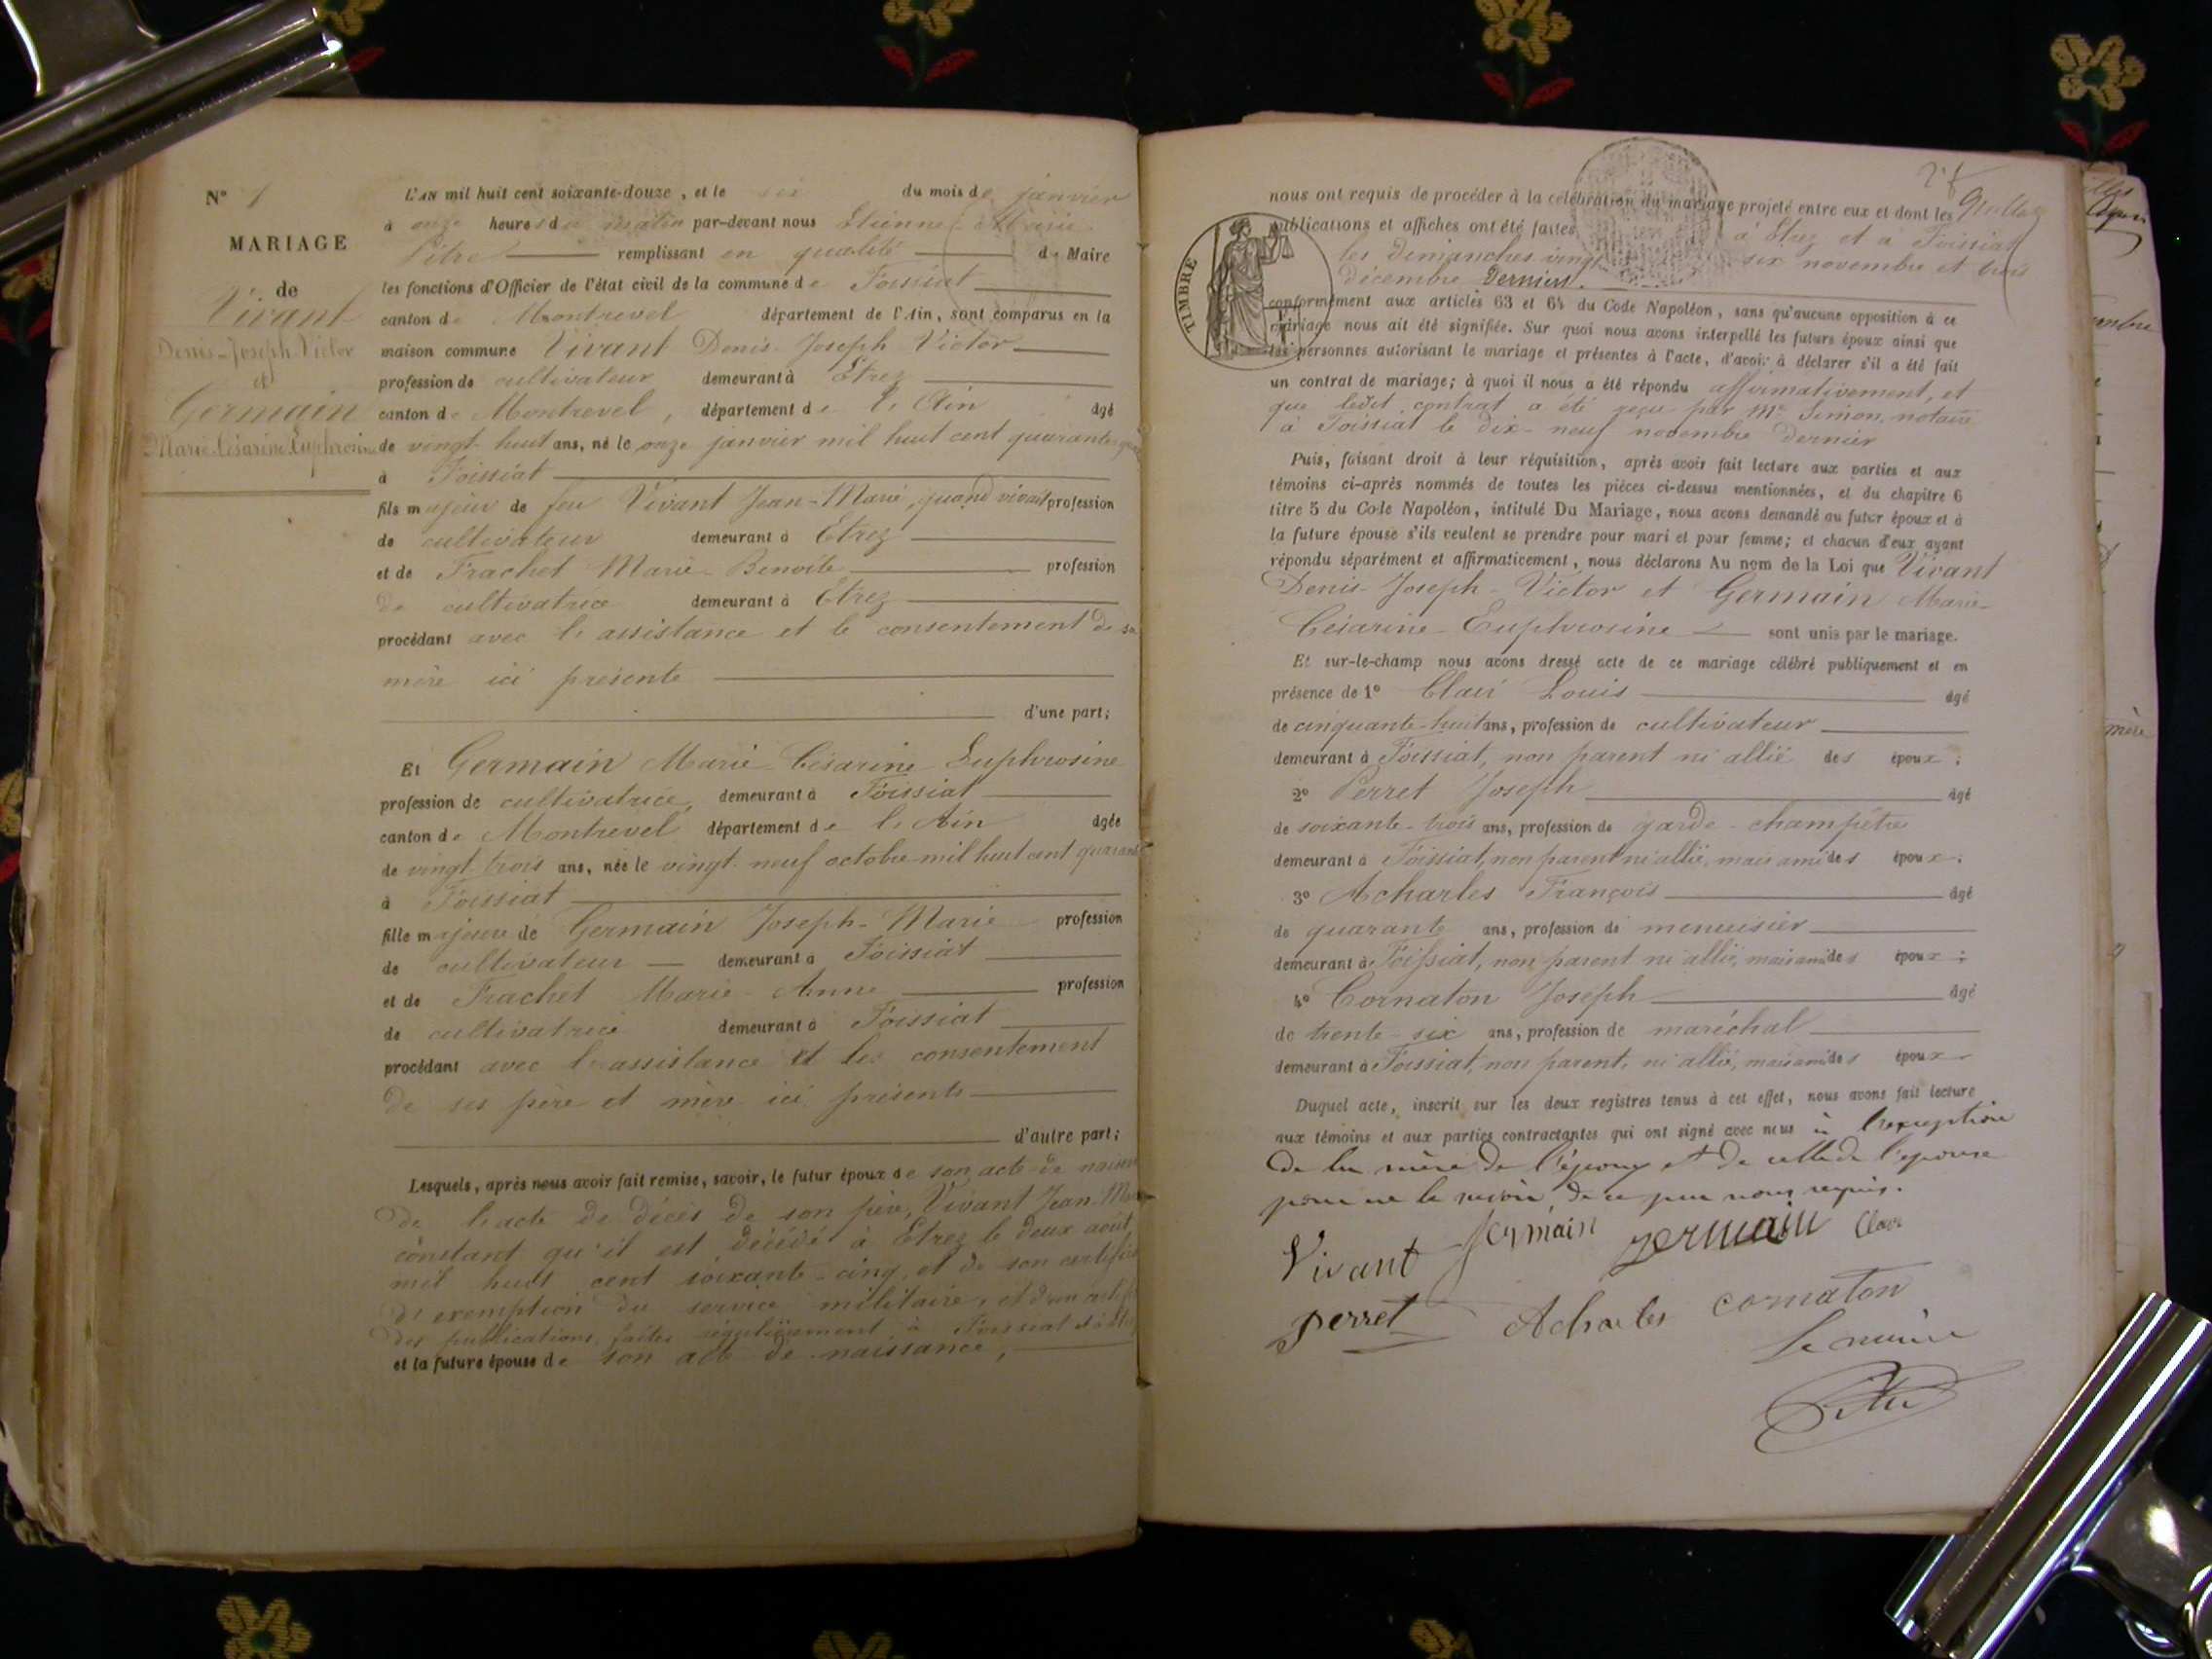 N° 1
MARIAGE
de
Vivant
Denis-Joseph-Victor
et
Germain
Marie-Césarine Euphrosine
L'AN mil huit cent soixante-douze, et le six du mois de janvier
à onze heures du matin par-devant nous Etienne-Marie
Pitre remplissant en qualité de Maire
les fonctions d'Officier de l'état civil de la commune de Foissiat
canton de Montrevel département de l'Ain, sont comparus en la
maison commune Vivant Denis-Joseph-Victor
profession de cultivateur demeurant à Etrez
canton de Montrevel, département de l'Ain âgé
de vingt-huit ans, né le onze janvier mil huit cent quarante
à Foissiat
fils majeur de feu Vivant Jean-Marie, quand vivait profession
de cultivateur demeurant à Etrez
et de Frachet Marie-Benoîte profession
de cultivatrice demeurant à Etrez
procédant avec l'assistance et le consentement de sa
mère ici présente
d'une part;
Et Germain Marie-Césarine Euphrosine
profession de cultivatrice, demeurant à Foissiat
canton de Montrevel département de l'Ain âgée
de vingt-trois ans, née le vingt-neuf octobre mil huit cent quarante
à Foissiat
fille majeure de Germain Joseph-Marie profession
de cultivateur demeurant à Foissiat
et de Frachet Marie-Anne profession
de cultivatrice demeurant à Foissiat
procédant avec l'assistance et le consentement
de ses père et mère ici présents
d'autre part;
Lesquels, après nous avoir fait remise, savoir, le futur époux de son acte de
de l'acte de décès de son père, Vivant Jean
constant qu'il est décédé à Etrez le deux août
mil huit cent soixante-cinq, et de son
d'exemption du service militaire, et d'un
des publications faites régulièrement à Foissiat
et la future épouse de son acte de naissance,
nous ont requis de procéder à la célébration du mariage projeté entre eux et dont les
publications et affiches ont été faites à Etrez et à Foissiat
les dimanches vingt-six novembre et trois
décembre derniers.
TIMBRE
conformément aux articles 63 et 64 du Code Napoléon, sans qu'aucune opposition à ce
mariage nous ait été signifiée. Sur quoi nous avons interpellé les futurs époux ainsi que
les personnes autorisant le mariage et présentes à l'acte, d'avoir à déclarer s'il a été fait
un contrat de mariage; à quoi il nous a été répondu affirmativement, et
que ledit contrat a été reçu par Me Simon, notaire
à Foissiat le dix-neuf novembre dernier
Puis, faisant droit à leur réquisition, après avoir fait lecture aux parties et aux
témoins ci-après nommés de toutes les pièces ci-dessus mentionnées, et du chapitre 6
titre 5 du Code Napoléon, intitulé Du Mariage, nous avons demandé au futur époux et à
la future épouse s'ils veulent se prendre pour mari et pour femme; et chacun d'eux ayant
répondu séparément et affirmativement, nous déclarons Au nom de la Loi que Vivant
Denis-Joseph-Victor et Germain Marie-
Césarine-Euphrosine sont unis par le mariage.
Et sur-le-champ nous avons dressé acte de ce mariage célébré publiquement et en
présence de 1° Clair Louis âgé
de cinquante-huit ans, profession de cultivateur
demeurant à Foissiat, non parent ni allié des époux;
2° Perret Joseph âgé
de soixante-trois ans, profession de garde-champêtre
demeurant à Foissiat, non parent ni allié, mais ami des époux;
3° Acharles François âgé
de quarante ans, profession de menuisier
demeurant à Foissiat, non parent ni allié, mais ami des époux;
4° Cornaton Joseph âgé
de trente-six ans, profession de maréchal
demeurant à Foissiat, non parent, ni allié, mais ami des époux
Duquel acte, inscrit sur les deux registres tenus à cet effet, nous avons fait lecture
aux témoins et aux parties contractantes qui ont signé avec nous à l'exception
de la mère de l'époux et de celle de l'épouse
pour ne le savoir de ce par nous requis.
Vivant germain germain Clair
perret Acharles cornaton
Le maire
Pitre